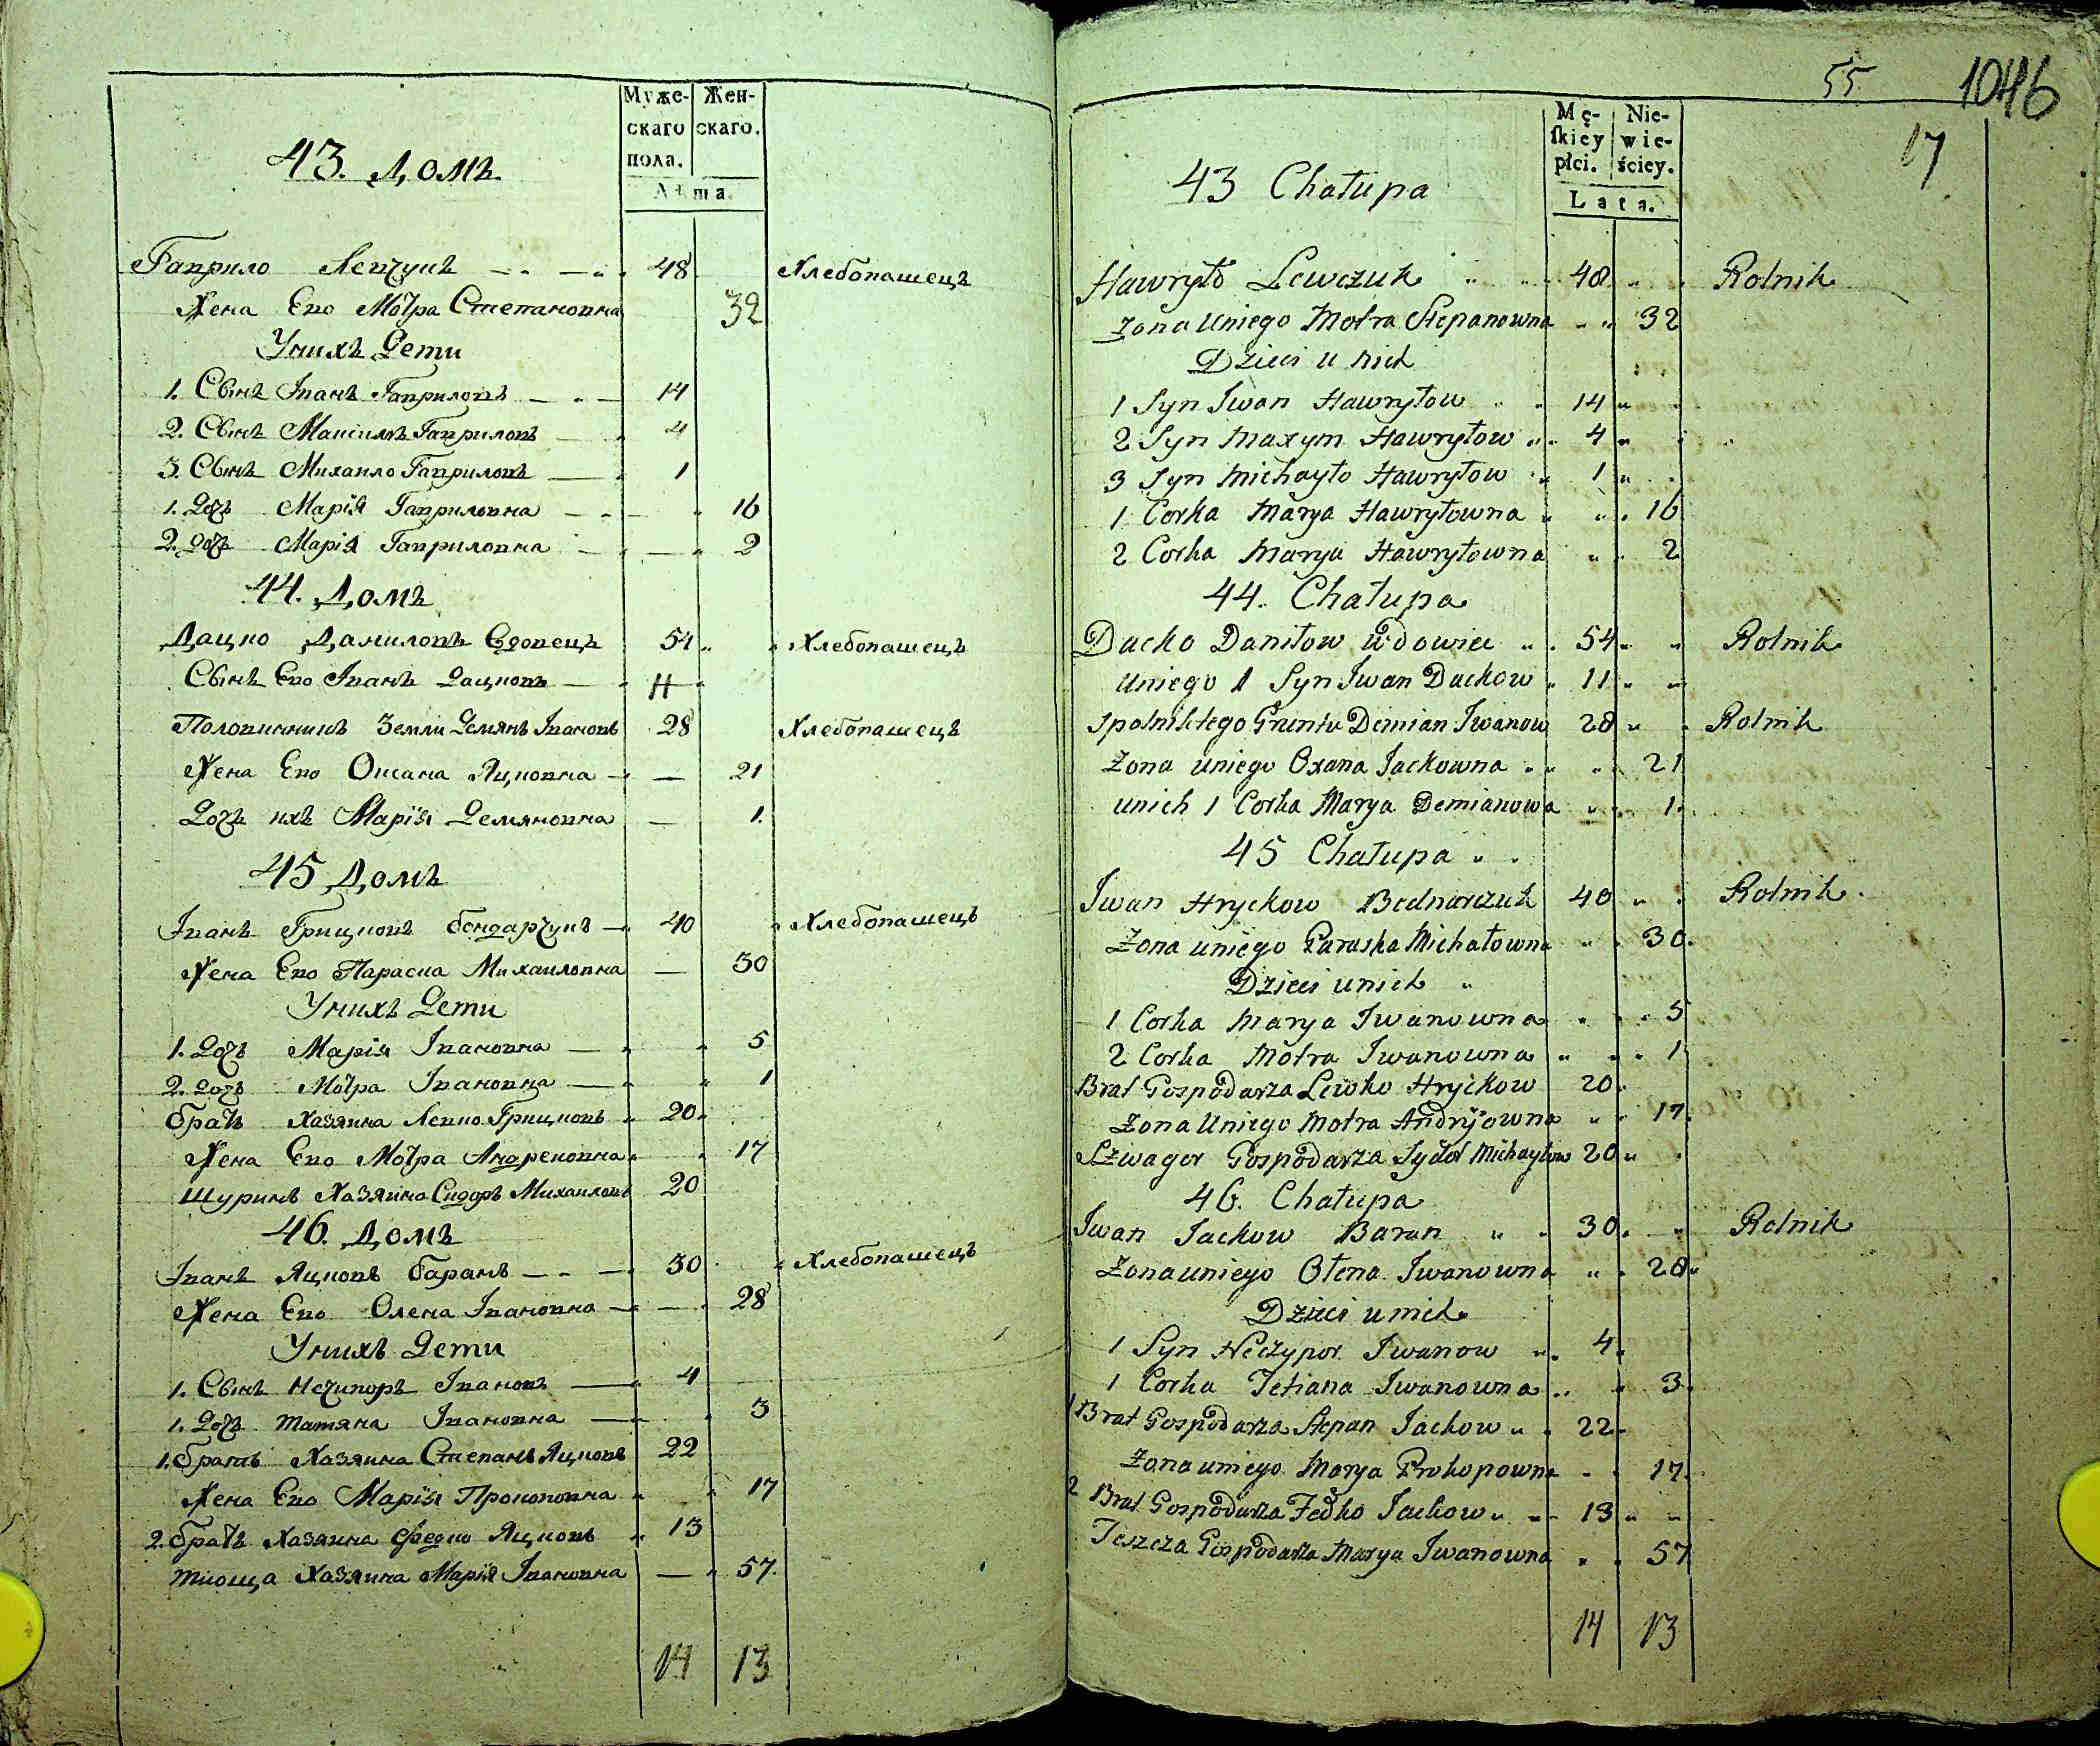 Муже-
скаго
пола.
Жен-
скаго.
Лѣта.
43. Домъ.
Гаврило Левчукъ 48 Хлебопашецъ
Жена Ево Мотра Степановна 32
У нихъ Дети
1. Сынъ Іванъ Гавриловъ 14
2. Сынъ Максимъ Гавриловъ 4
3. Сынъ Михаило Гавриловъ 1
1. Дочъ Марія Гавриловна 16
2. Дочъ Марія Гавриловна 2
44. Домъ
Дацко Даниловъ Вдовецъ 54 Хлебопашецъ
Сынъ Ево Іванъ Дацковъ 11
Половинникъ Земли Демянъ Івановъ 28 Хлебопашецъ
Жена Ево Оксана Яцковна 21
Дочъ ихъ Марія Демяновна 1.
45 Домъ
Іванъ Грицковъ Бондарчукъ 40 Хлебопашецъ
Жена Ево Параска Михаиловна 30
У нихъ Дети
1. Дочъ Марія Івановна 5
2. Дочъ Мотра Івановна 1
Братъ Хазяина Левко Грицковъ 20
Жена Ево Мотра Андреновна 17
Шуринъ Хазяина Сидоръ Михаиловъ 20
46. Домъ
Іванъ Яцковъ Баранъ 30 Хлебопашецъ
Жена Ево Олена Івановна 28
У нихъ Дети
1. Сынъ Нечипоръ Івановъ 4
1. Дочъ Татяна Івановна 3
1. Братъ Хазяина Степанъ Яцковъ 22
Жена Ево Марія Прокоповна 17
2. Братъ Хазяина Федко Яцковъ 13
Тиоща Хазяина Марія Івановна 57.
14 13
55 1046
17
Mę-
ſkiey
płci.
Nie-
wie-
ściey.
Lata.
43 Chałupa
Hawryło Lewczuk 48 Rolnik
Żona Uniego Motra Stepanowna 32
Dzieci u nich
1 Syn Iwan Hawryłow 14
2 Syn Maxym Hawryłow 4
3 Syn Michayło Hawryłow 1
1 Corka Marya Hawryłowna 16
2 Corka Marya Hawryłowna 2
44. Chałupa
Dacko Daniłow Wdowiec 54 Rolnik
Uniego 1 Syn Iwan Dackow 11
Spolniktego Gruntu Demian Iwanow 28 Rolnik
Żona uniego Oxana Jackowna 21
unich 1 Corka Marya Demianowa 1.
45 Chałupa
Iwan Hryckow Bednarczuk 40 Rolnik
Żona uniego Paraska Michałowna 30.
Dzieci unich
1 Corka Marya Iwanowna 5
2 Corka Motra Iwanowna 1
Brat Gospodarza Lewko Hryckow 20
Żona Uniego Motra Andryjowna 17
Szwagier Gospodarza Sydor Michayłow 20
46. Chałupa
Iwan Jackow Baran 30 Rolnik
Żona uniego Ołena Iwanowna 28
Dzieci unich
1 Syn Neczypor Iwanow 4
1 Corka Tetiana Iwanowna 3
1 Brat Gospodarza Stepan Jackow 22
Żona uniego Marya Prokopowna 17
2 Brat Gospodarza Fedko Jackow 13
Teszcza Gospodarza Marya Iwanowna 57
14 13